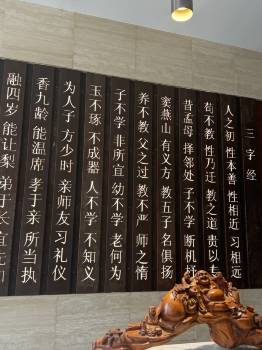 三字经
人之初 性本善 性相近 习相远
苟不教 性乃迁 教之道 贵以专
昔孟母 择邻处 子不学 断机杼
窦燕山 有义方 教五子 名俱扬
养不教 父之过 教不严 师之惰
子不学 非所宜 幼不学 老何为
玉不琢 不成器 人不学 不知义
为人子 方少时 亲师友 习礼仪
香九龄 能温席 孝于亲 所当执
融四岁 能让梨 弟于长 宜先